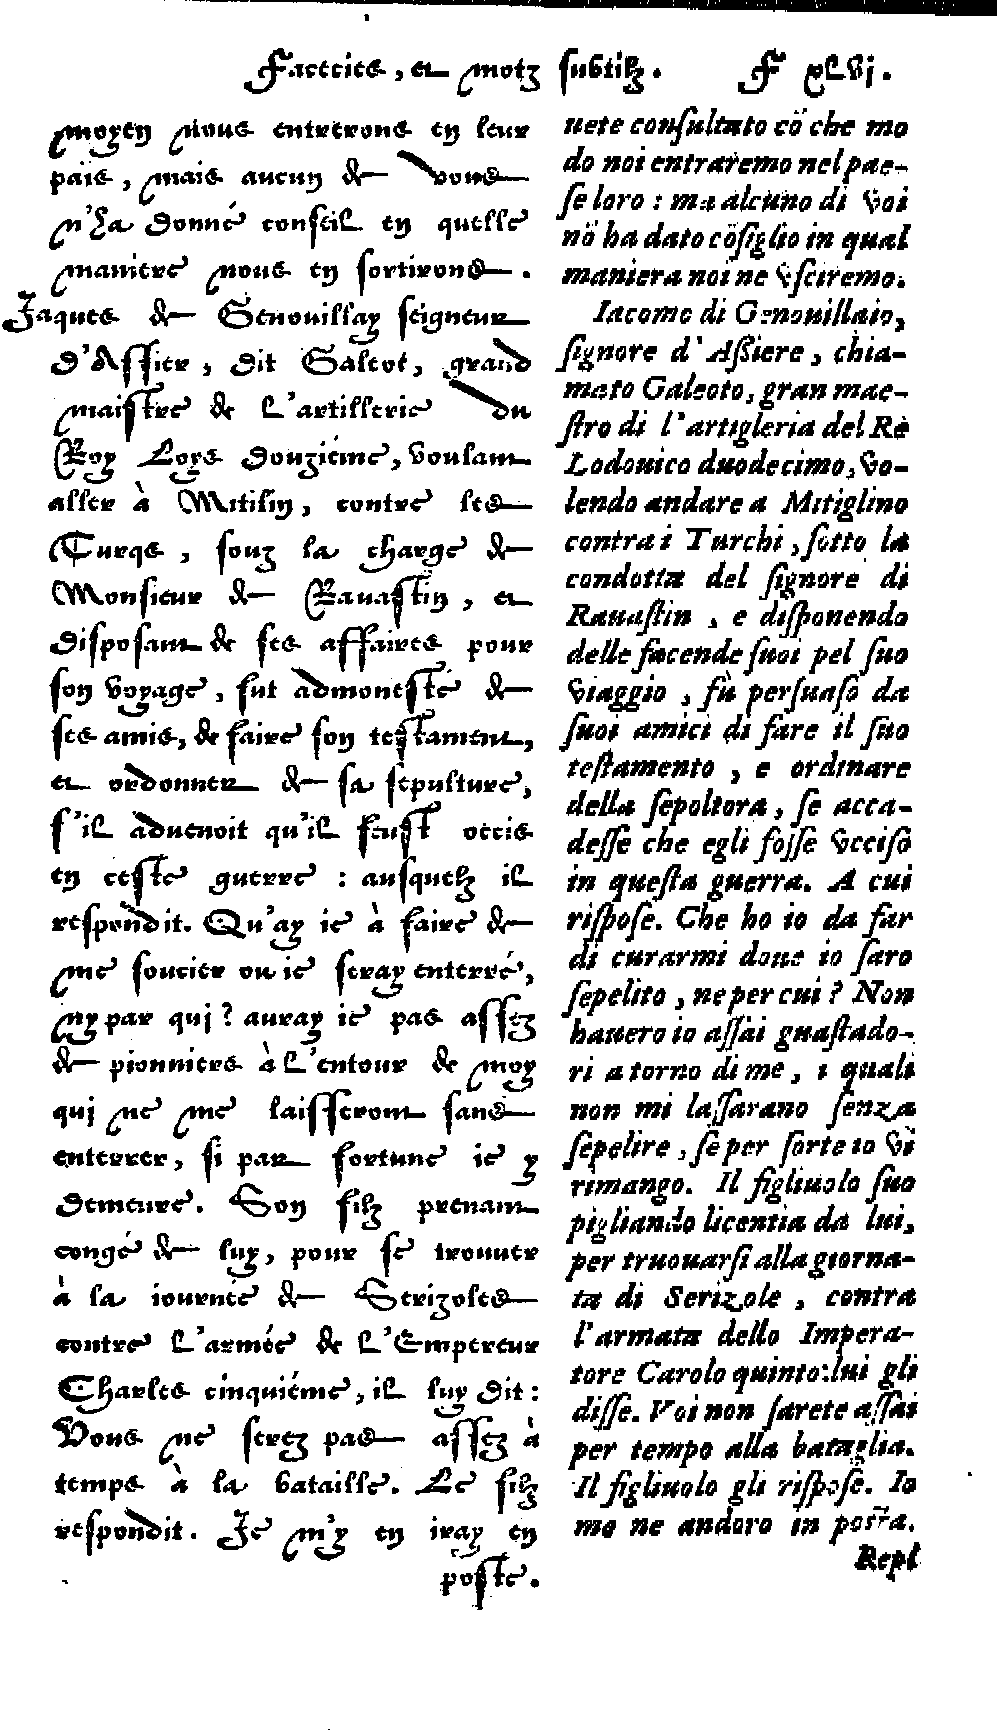 Facecies, et motz subtilz. F xlvj.
moyen nous entrerons en leur
païs, mais aucun de vous
n'ha donné conseil en quelle
maniere nous en sortirons.
Jaques de Genouillay seigneur
d'Assier, dit Galeot, grand
maistre de l'artillerie du
Roy Loys douziéme, voulant
aller à Mitilin, contre les
Turqs, souz la charge de
Monsieur de Ravastin, et
disposant de ses affaires pour
son voyage, fut admonesté de
ses amis, de faire son testament,
et ordonner de sa sepulture,
s'il advenoit qu'il feust occis
en ceste guerre : ausquelz il
respondit. Qu'ay ie à faire de
me soucier ou ie seray enterré,
ny par qui? auray ie pas assez
de pionniers à l'entour de moy
qui ne me laisseront sans
enterrer, si par fortune ie y
demeure. Son filz prenant
congé de luy, pour se trouver
à la iournée de Serizoles
contre l'armée de l'Empereur
Charles cinquiéme, il luy dit :
Vous ne serez pas assez à
temps à la bataille. Le filz
respondit. Je m'y en iray en
poste.
uete consultato cõ che mo
do noi entraremo nel pae-
ſe loro : ma alcuno di voi
nõ ha dato cõſiglio in qual
maniera noi ne vſciremo.
Iacomo di Genouillaio,
ſignore d'Aſſiere, chia-
mato Galeoto, gran mae-
ſtro di l'artigleria del Rè
Lodouico duodecimo, vo-
lendo andare a Mitiglino
contra i Turchi, ſotto la
condotta del ſignore di
Rauaſtin, e diſponendo
delle facende ſuoi pel ſuo
viaggio, fù perſuaſo da
ſuoi amici di fare il ſuo
teſtamento, e ordinare
della ſepoltora, ſe acca-
deſſe che egli foſſe vcciſo
in queſta guerra. A cui
riſpoſe. Che ho io da far
di curarmi doue io ſaro
ſepelito, ne per cui? Non
hauero io aſſai guaſtado-
ri a torno di me, i quali
non mi laſſarano ſenza
ſepelire, ſe per ſorte io vi
rimango. Il figliuolo ſuo
pigliando licentia da lui,
per truouarſi alla giorna-
ta di Serizole, contra
l'armata dello Impera-
tore Carolo quinto: lui gli
diſſe. Voi non ſarete aſſai
per tempo alla bataglia.
Il figliuolo gli riſpoſe. Io
mo ne andoro in poſta.
Repl